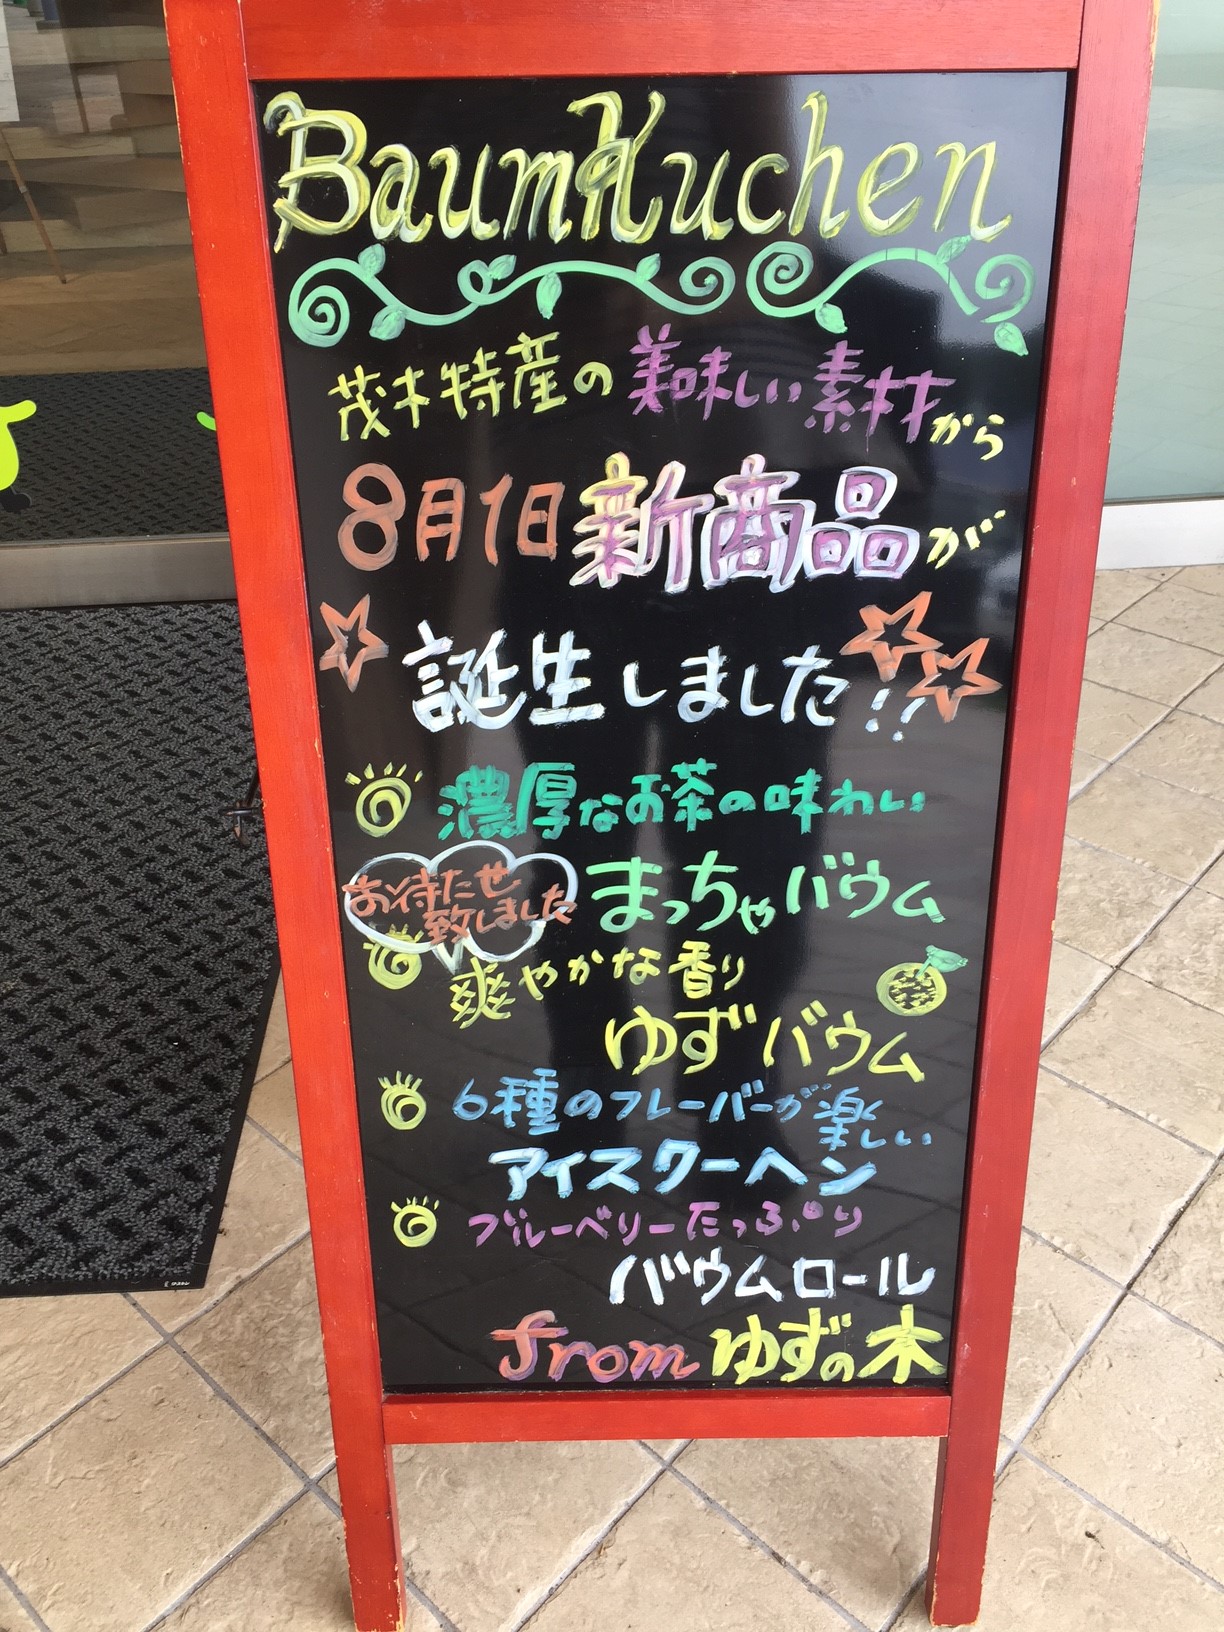 BaumKuchen
茂木特産の美味しい素材から
8月1日新商品が
誕生しました!!
濃厚なお茶の味わい
お待たせ
致しました
まっちゃバウム
爽やかな香り
ゆずバウム
6種のフレーバーが楽しい
アイスクーヘン
ブルーベリーたっぷり
バウムロール
from ゆずの木